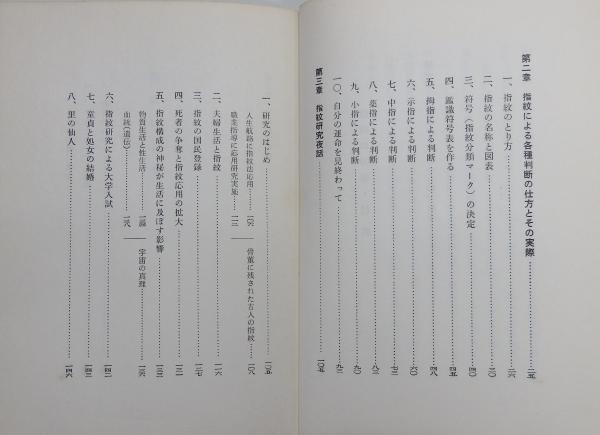 第二章　指紋による各種判断の仕方とその実際……二五
一、指紋のとり方……二六
二、指紋の名称と図表……三〇
三、符号（指紋分類マーク）の決定……四〇
四、鑑識符号表を作る……四五
五、拇指による判断……四八
六、示指による判断……六〇
七、中指による判断……七二
八、薬指による判断……八二
九、小指による判断……九〇
一〇、自分の運命を見終わって……九二
第三章　指紋研究夜話……一〇五
一、研究のはじめ……一〇五
人生航路に指紋法応用……一〇六
骨董に残された古人の指紋……一〇八
職業指導に応用研究実施……一一三
二、夫婦生活と指紋……一一六
三、指紋の国民登録……一二七
四、死者の争奪と指紋応用の拡大……一三一
五、指紋構成の神秘が生活に及ぼす影響……一三二
物質生活と性生活……一三四
宇宙の真理……一三六
血統（遺伝）……一三八
六、指紋研究による大学入試……一四二
七、童貞と処女の結婚……一四三
八、里の仙人……一四六